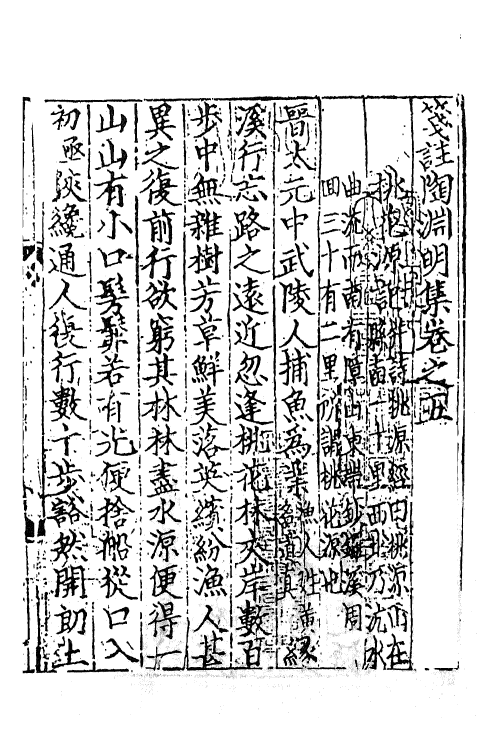 箋註陶淵明集卷之五
桃花源記并詩桃源經曰桃源山在
縣南一十里西北乃沅水
曲流而南有障山東帶鈔鑼溪周
回三十有二里所謂桃花源也
晉太元中武陵人捕魚為業漁人姓黃
溪行忘路之遠近忽逢桃花林夾岸數百
步中無雜樹芳草鮮美落英繽紛漁人甚
異之復前行欲窮其林林盡水源便得一
山山有小口髣髴若有光便捨船從口入
初極狹纔通人復行數十步豁然開朗土